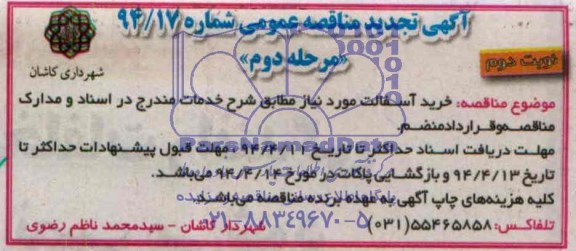 آگهی تجدید مناقصه عمومی شماره ۹۴/۱۷
«مرحله دوم»
نوبت دوم
شهرداری کاشان
موضوع مناقصه: خرید آسفالت مورد نیاز مطابق شرح خدمات مندرج در اسناد و مدارک
مناقصه و قرارداد منضم.
مهلت دریافت اسناد حداکثر تا تاریخ ۹۴/۴/۱۱ مهلت قبول پیشنهادات حداکثر تا
تاریخ ۹۴/۴/۱۳ و بازگشایی پاکات در مورخ ۹۴/۴/۱۴ می‌باشد.
کلیه هزینه‌های چاپ آگهی به عهده برنده مناقصه می‌باشد.
تلفاکس: ۵۵۴۶۵۸۵۸ (۰۳۱)
شهردار کاشان - سیدمحمد ناظم رضوی
۰۲۱-۸۸۳۴۹۶۷۰-۵